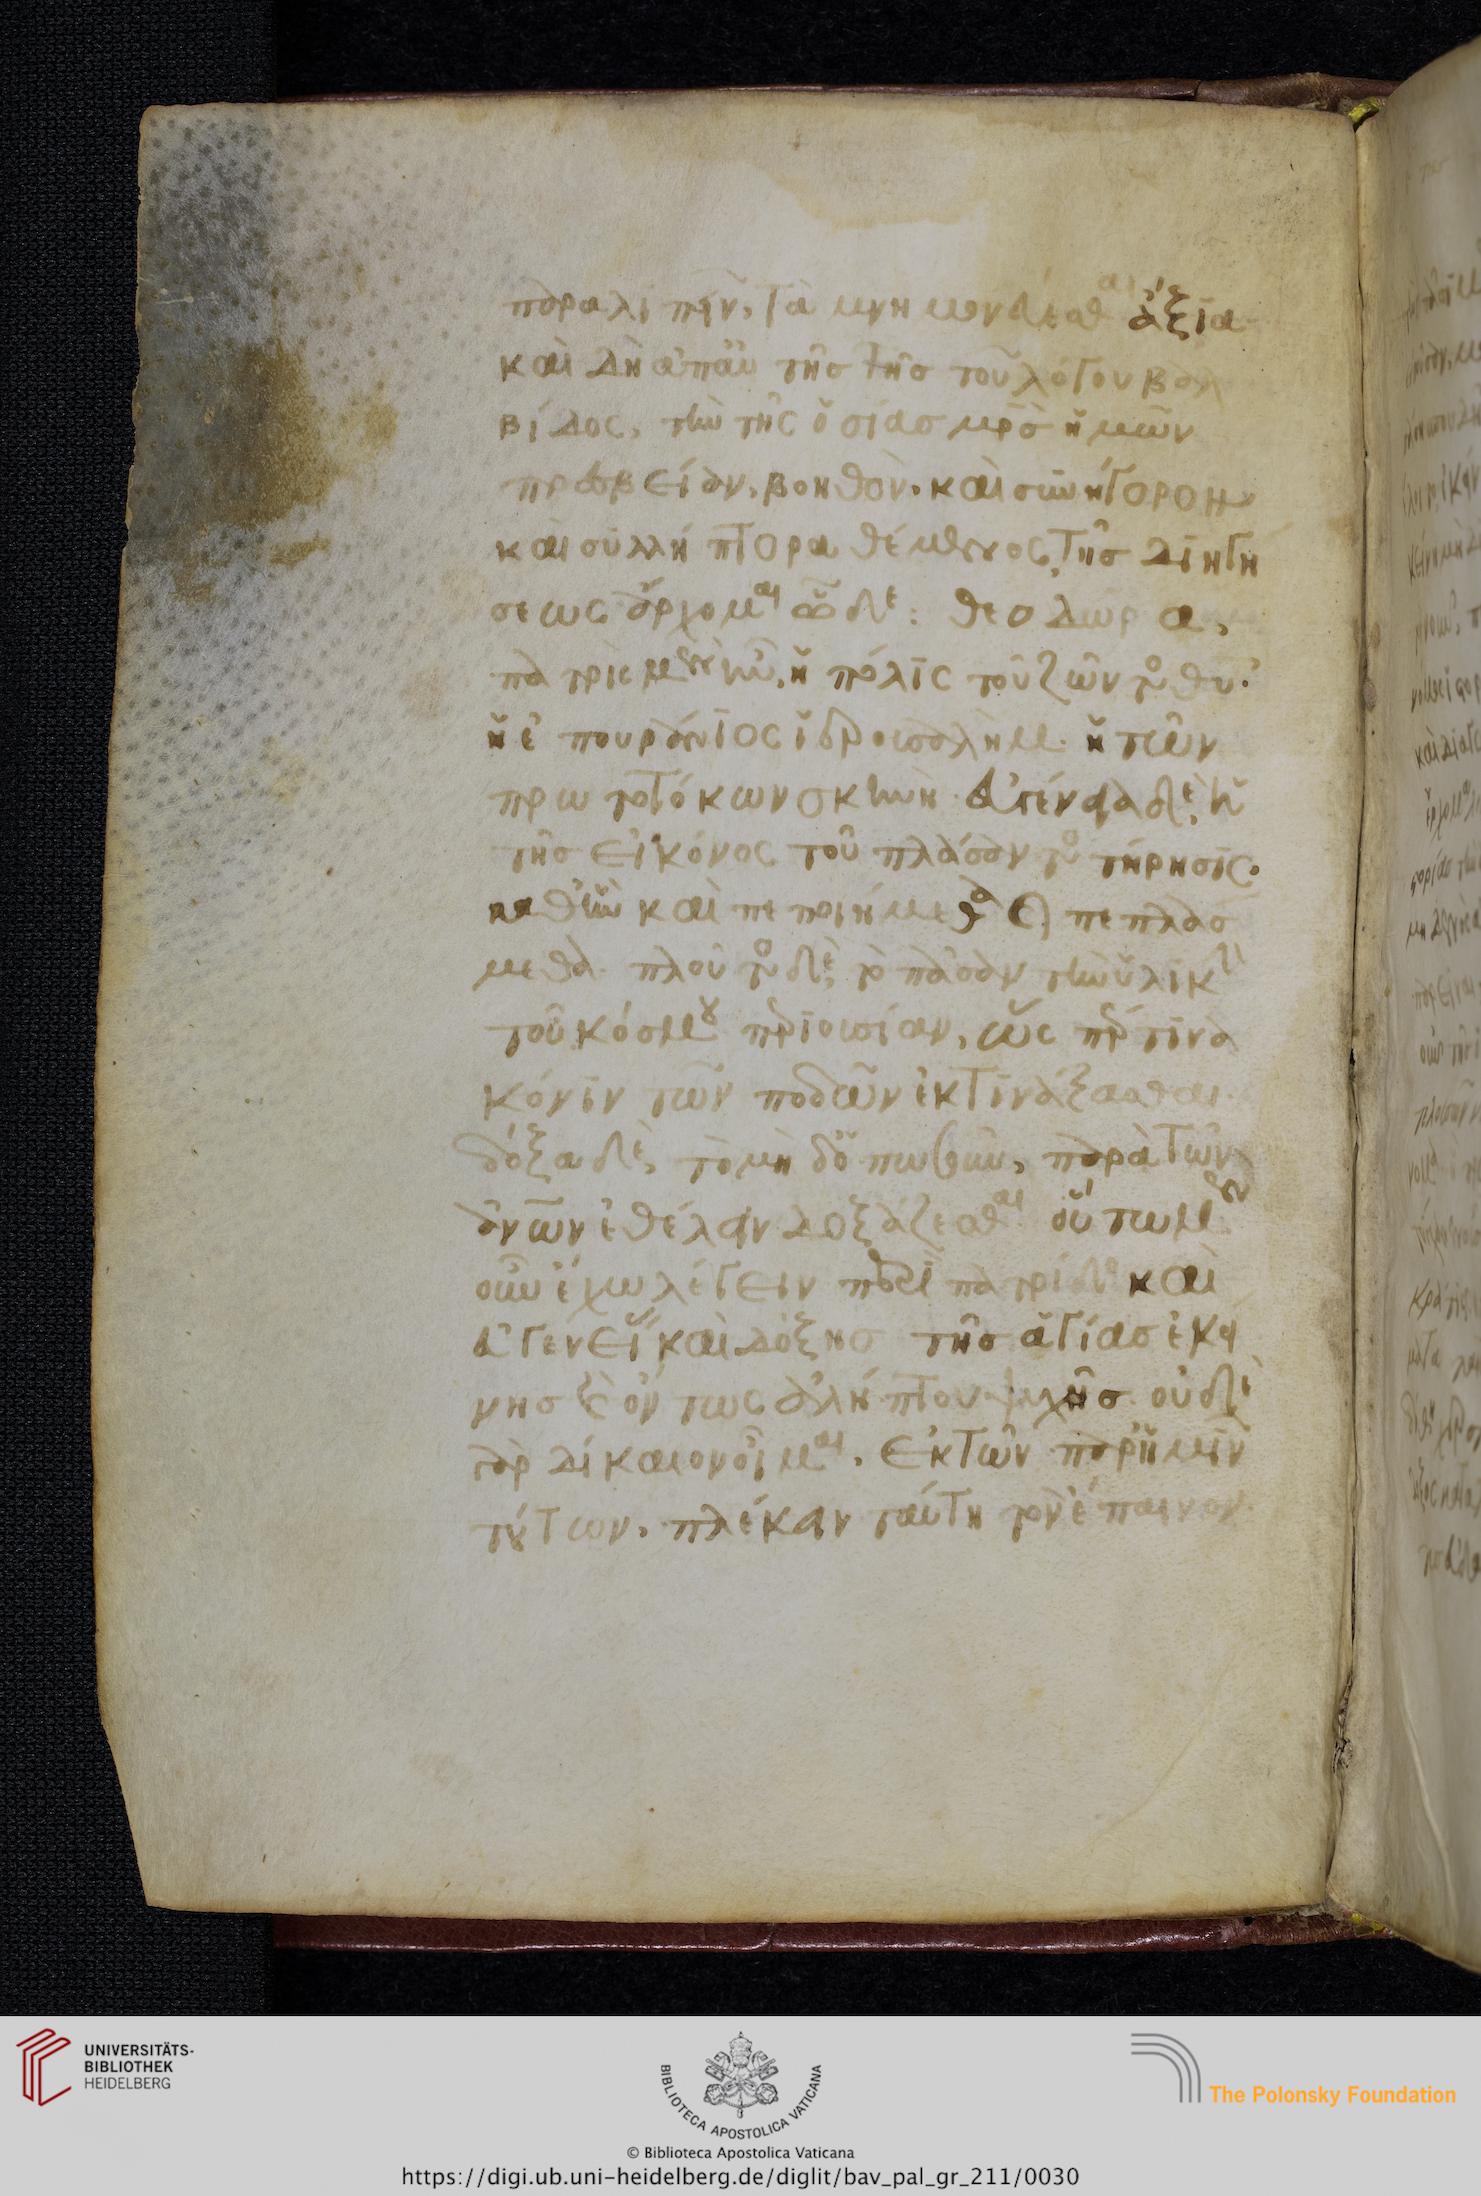 παραλιπεῖν, τὰ μνημονεύεσθαι ἄξια
καὶ δὴ ἀπ' αὐτῆς τῆς τοῦ λόγου βαλ
βίδος, τὴν τῆς ὁσίας μρ̅ς ἡμῶν
πρεσβείαν, βοηθὸν· καὶ συνήγορον
καὶ συλλήπτορα θέμενος, τῆς διηγή
σεως ἄρχομαι ὧδε: Θεοδώρα,
πατρὶς μὲν ἦν, ἡ πόλις τοῦ ζῶντος θυ̅·
ἡ ἐπουράνιος ἱερουσαλὴμ· ἡ τῶν
πρωτοτόκων σκηνὴ· εὐγένεια δὲ, ἡ
τῆς εἰκόνος τοῦ πλάσαντος τήρησις·
καθ' ἣν καὶ πεποιήμεθα καὶ πεπλάσ
μεθα· πλοῦτος δὲ, τὸ πᾶσαν τὴν ὑλικὴν
τοῦ κόσμου περιουσίαν, ὥς περ τινὰ
κόνιν τῶν ποδῶν ἐκτινάξασθαι·
δόξα δὲ, τὸ μὴ παρὰ τῶν
ἀνων ἐθέλειν δοξάζεσθαι οὕτω μὲν
οὖν ἔχω λέγειν περὶ πατρίδος καὶ
εὐγενείας καὶ δόξης τῆς ἁγίας ἐκεί
νης καὶ ὄντως ἀλήπτου ψυχῆς· οὐδὲ
γὰρ δίκαιον οἶμαι, ἐκ τῶν παρ' ἡμῖν
τούτων, πλέκειν ταύτη τὸν ἔπαινον·
UNIVERSITÄTS-
BIBLIOTHEK
HEIDELBERG
BIBLIOTECA APOSTOLICA VATICANA
The Polonsky Foundation
© Biblioteca Apostolica Vaticana
https://digi.ub.uni-heidelberg.de/diglit/bav_pal_gr_211/0030